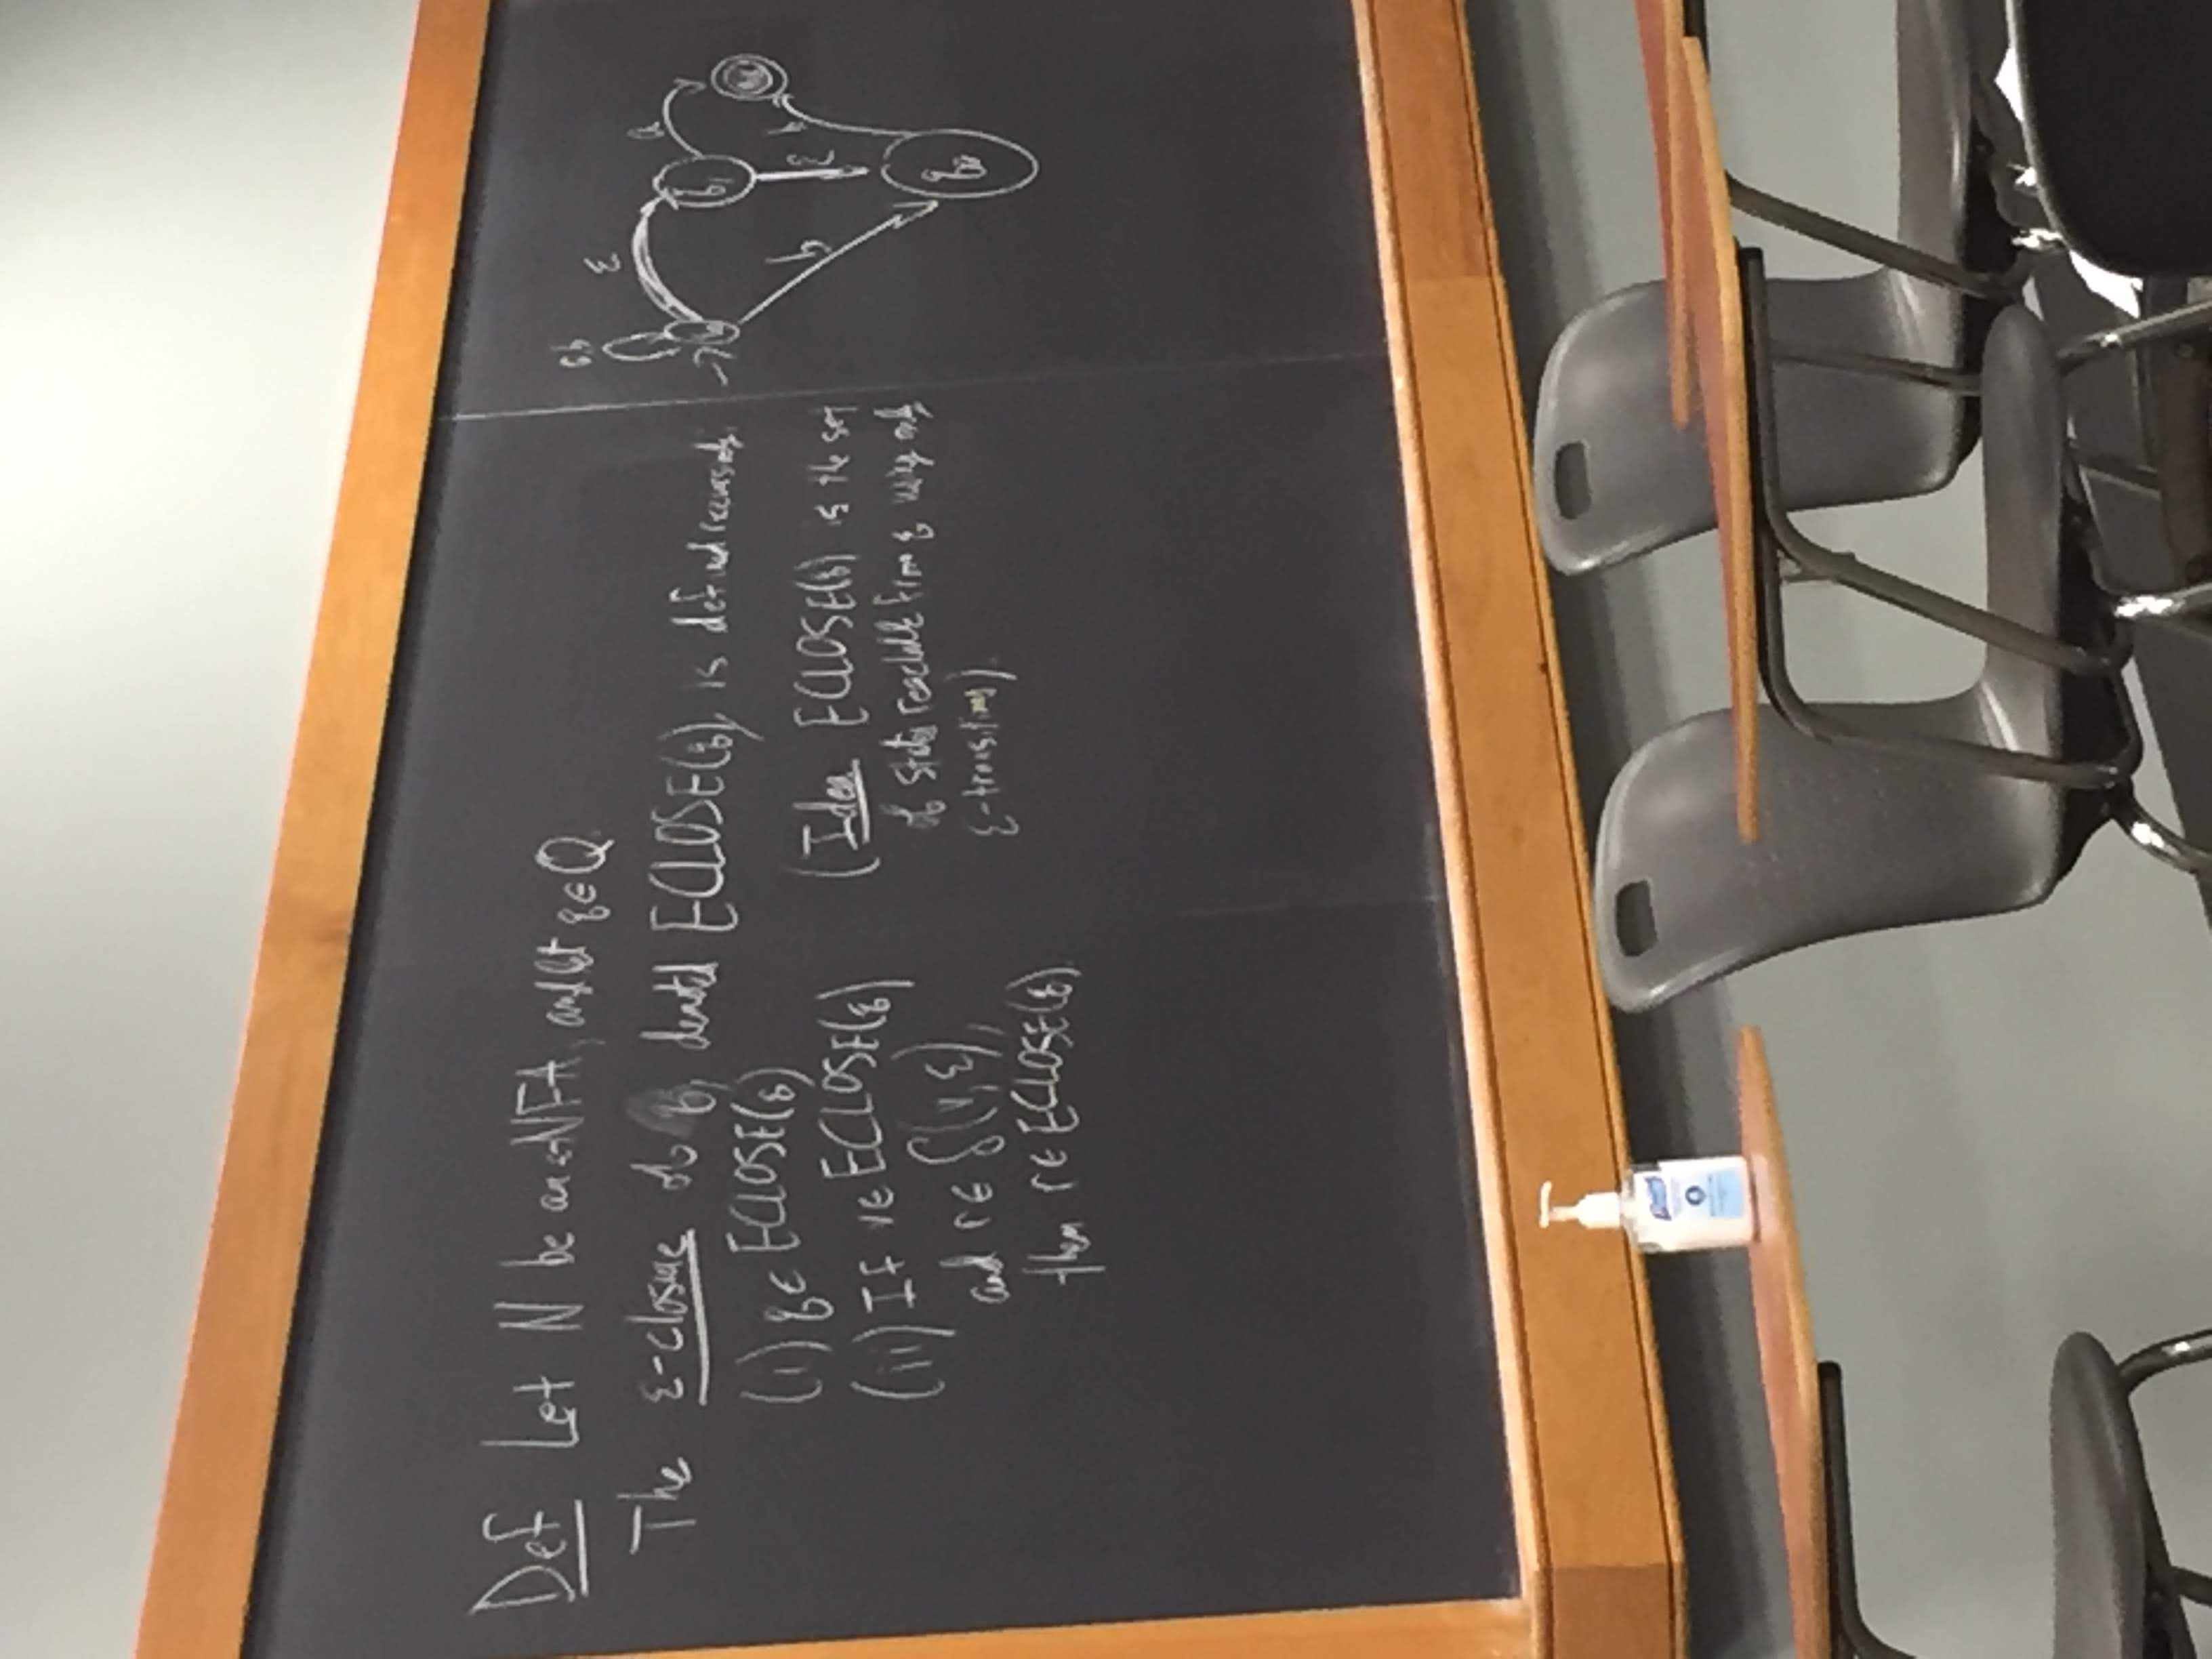 Def Let N be an ε-NFA, and let q∈Q.
The ε-closure of q, denoted ECLOSE(q), is defined recursively.
(i) q∈ ECLOSE(q)
(ii) If v∈ ECLOSE(q)
and r∈ δ(v, ε),
then r∈ ECLOSE(q).
(Idea ECLOSE(q) is the set
of states reachable from q using only
ε-transitions).
a,b
ε
a
q₁
b
ε
b